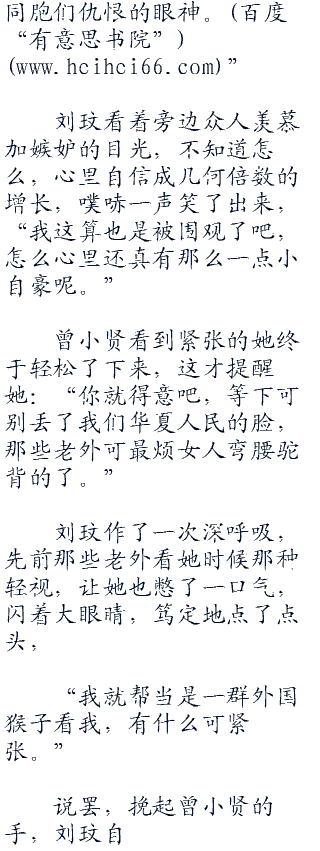 同胞们仇恨的眼神。(百度
“有意思书院”)
(www.hcihci66.com)”
刘玟看着旁边众人羡慕
加嫉妒的目光，不知道怎
么，心里自信成几何倍数的
增长，噗哧一声笑了出来，
“我这算也是被围观了吧，
怎么心里还真有那么一点小
自豪呢。”
曾小贤看到紧张的她终
于轻松了下来，这才提醒
她：“你就得意吧，等下可
别丢了我们华夏人民的脸，
那些老外可最烦女人弯腰驼
背的了。”
刘玟作了一次深呼吸，
先前那些老外看她时候那种
轻视，让她也憋了一口气，
闪着大眼睛，笃定地点了点
头；
“我就帮当是一群外国
猴子看我，有什么可紧
张。”
说罢，挽起曾小贤的
手，刘玟自